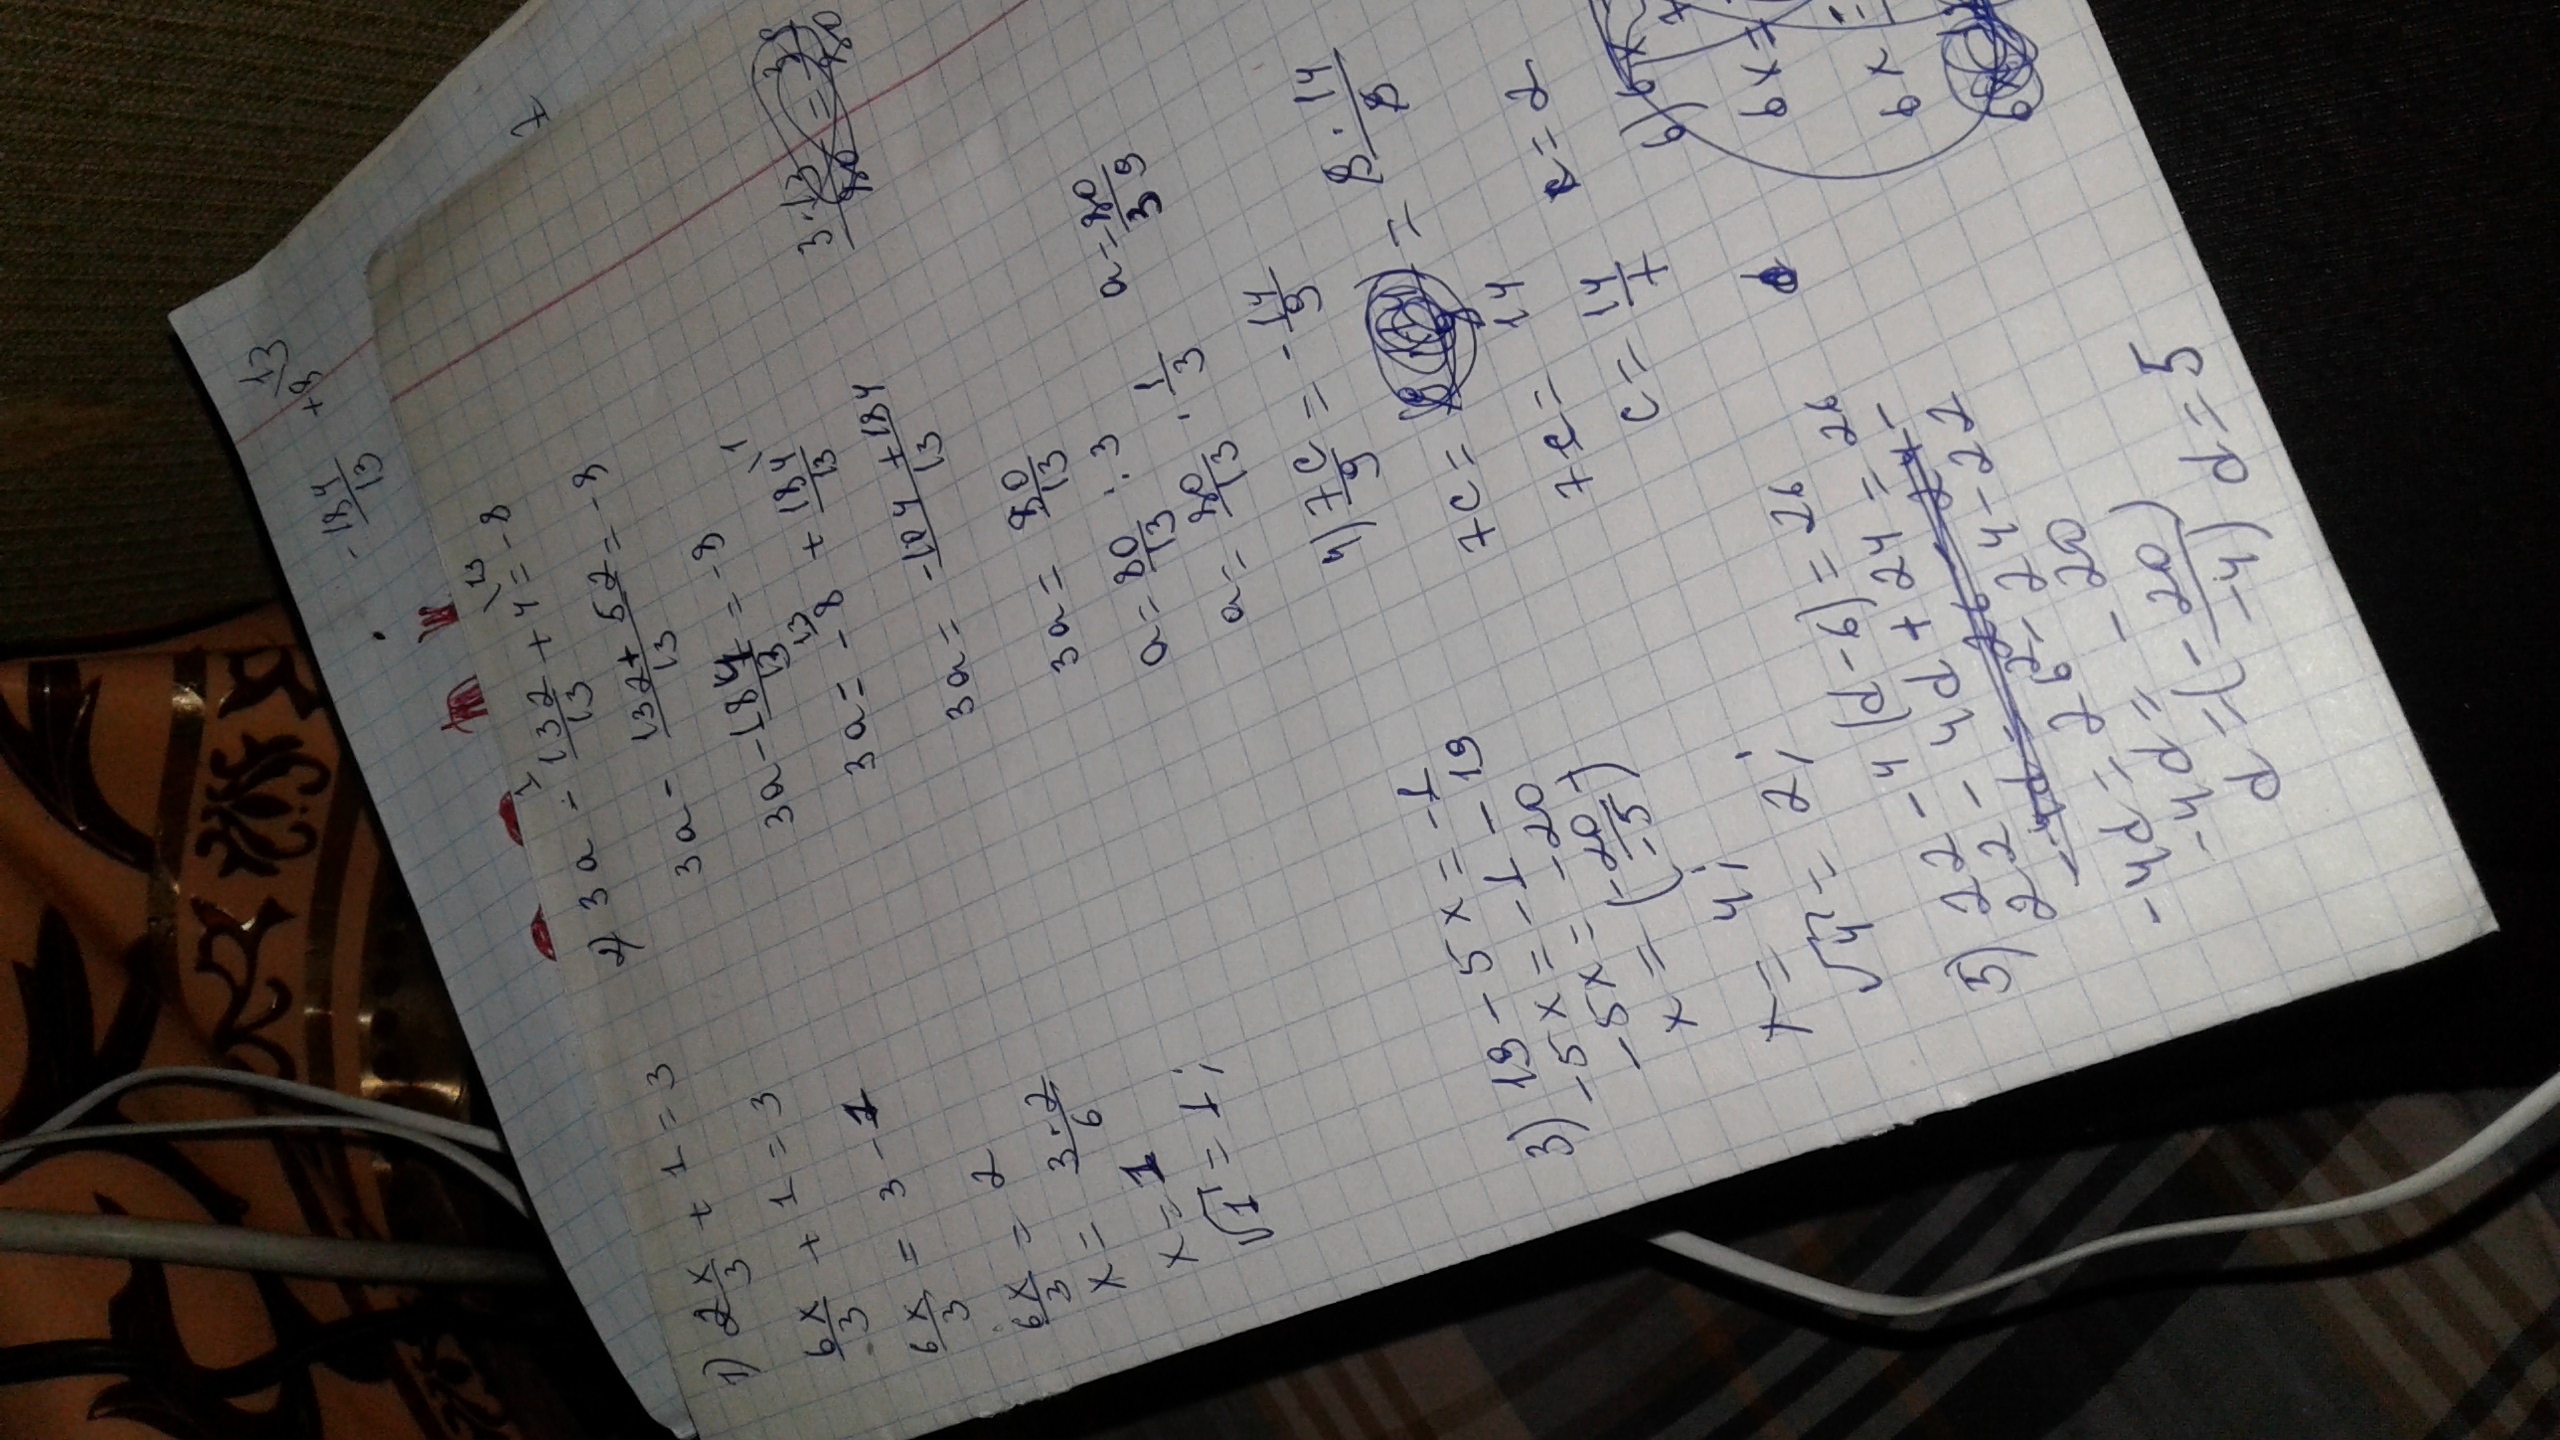 1) 2x/3 + 1 = 3
6x/3 + 1 = 3
6x/3 = 3 - 1
6x/3 = 2
x = 3·2/6
x = 1
√1 = 1;
2) 3a - 132/13 + 4 = -8
3a - 132+52/13 = -8
3a - 184/13 = -8
3a = -8 + 184/13
3a = -104+184/13
3a = 80/13
a = 80/13 : 3
a = 80/13 · 1/3
a = 80/39
3) 19 - 5x = -1
-5x = -1 - 19
-5x = -20
x = (-20/-5)
x = 4;
√4 = 2;
4) 7c/9 = -14/9
7c =
7c = 14
c = 14/7
c = 2
5) 22 - 4(d - 6) = 26
22 - 4d + 24 = 26
-4d = 26 - 24 - 22
-4d = -20
d = (-20/-4) d = 5
6) 6x
6x =
6x =
-184/13
13/+8